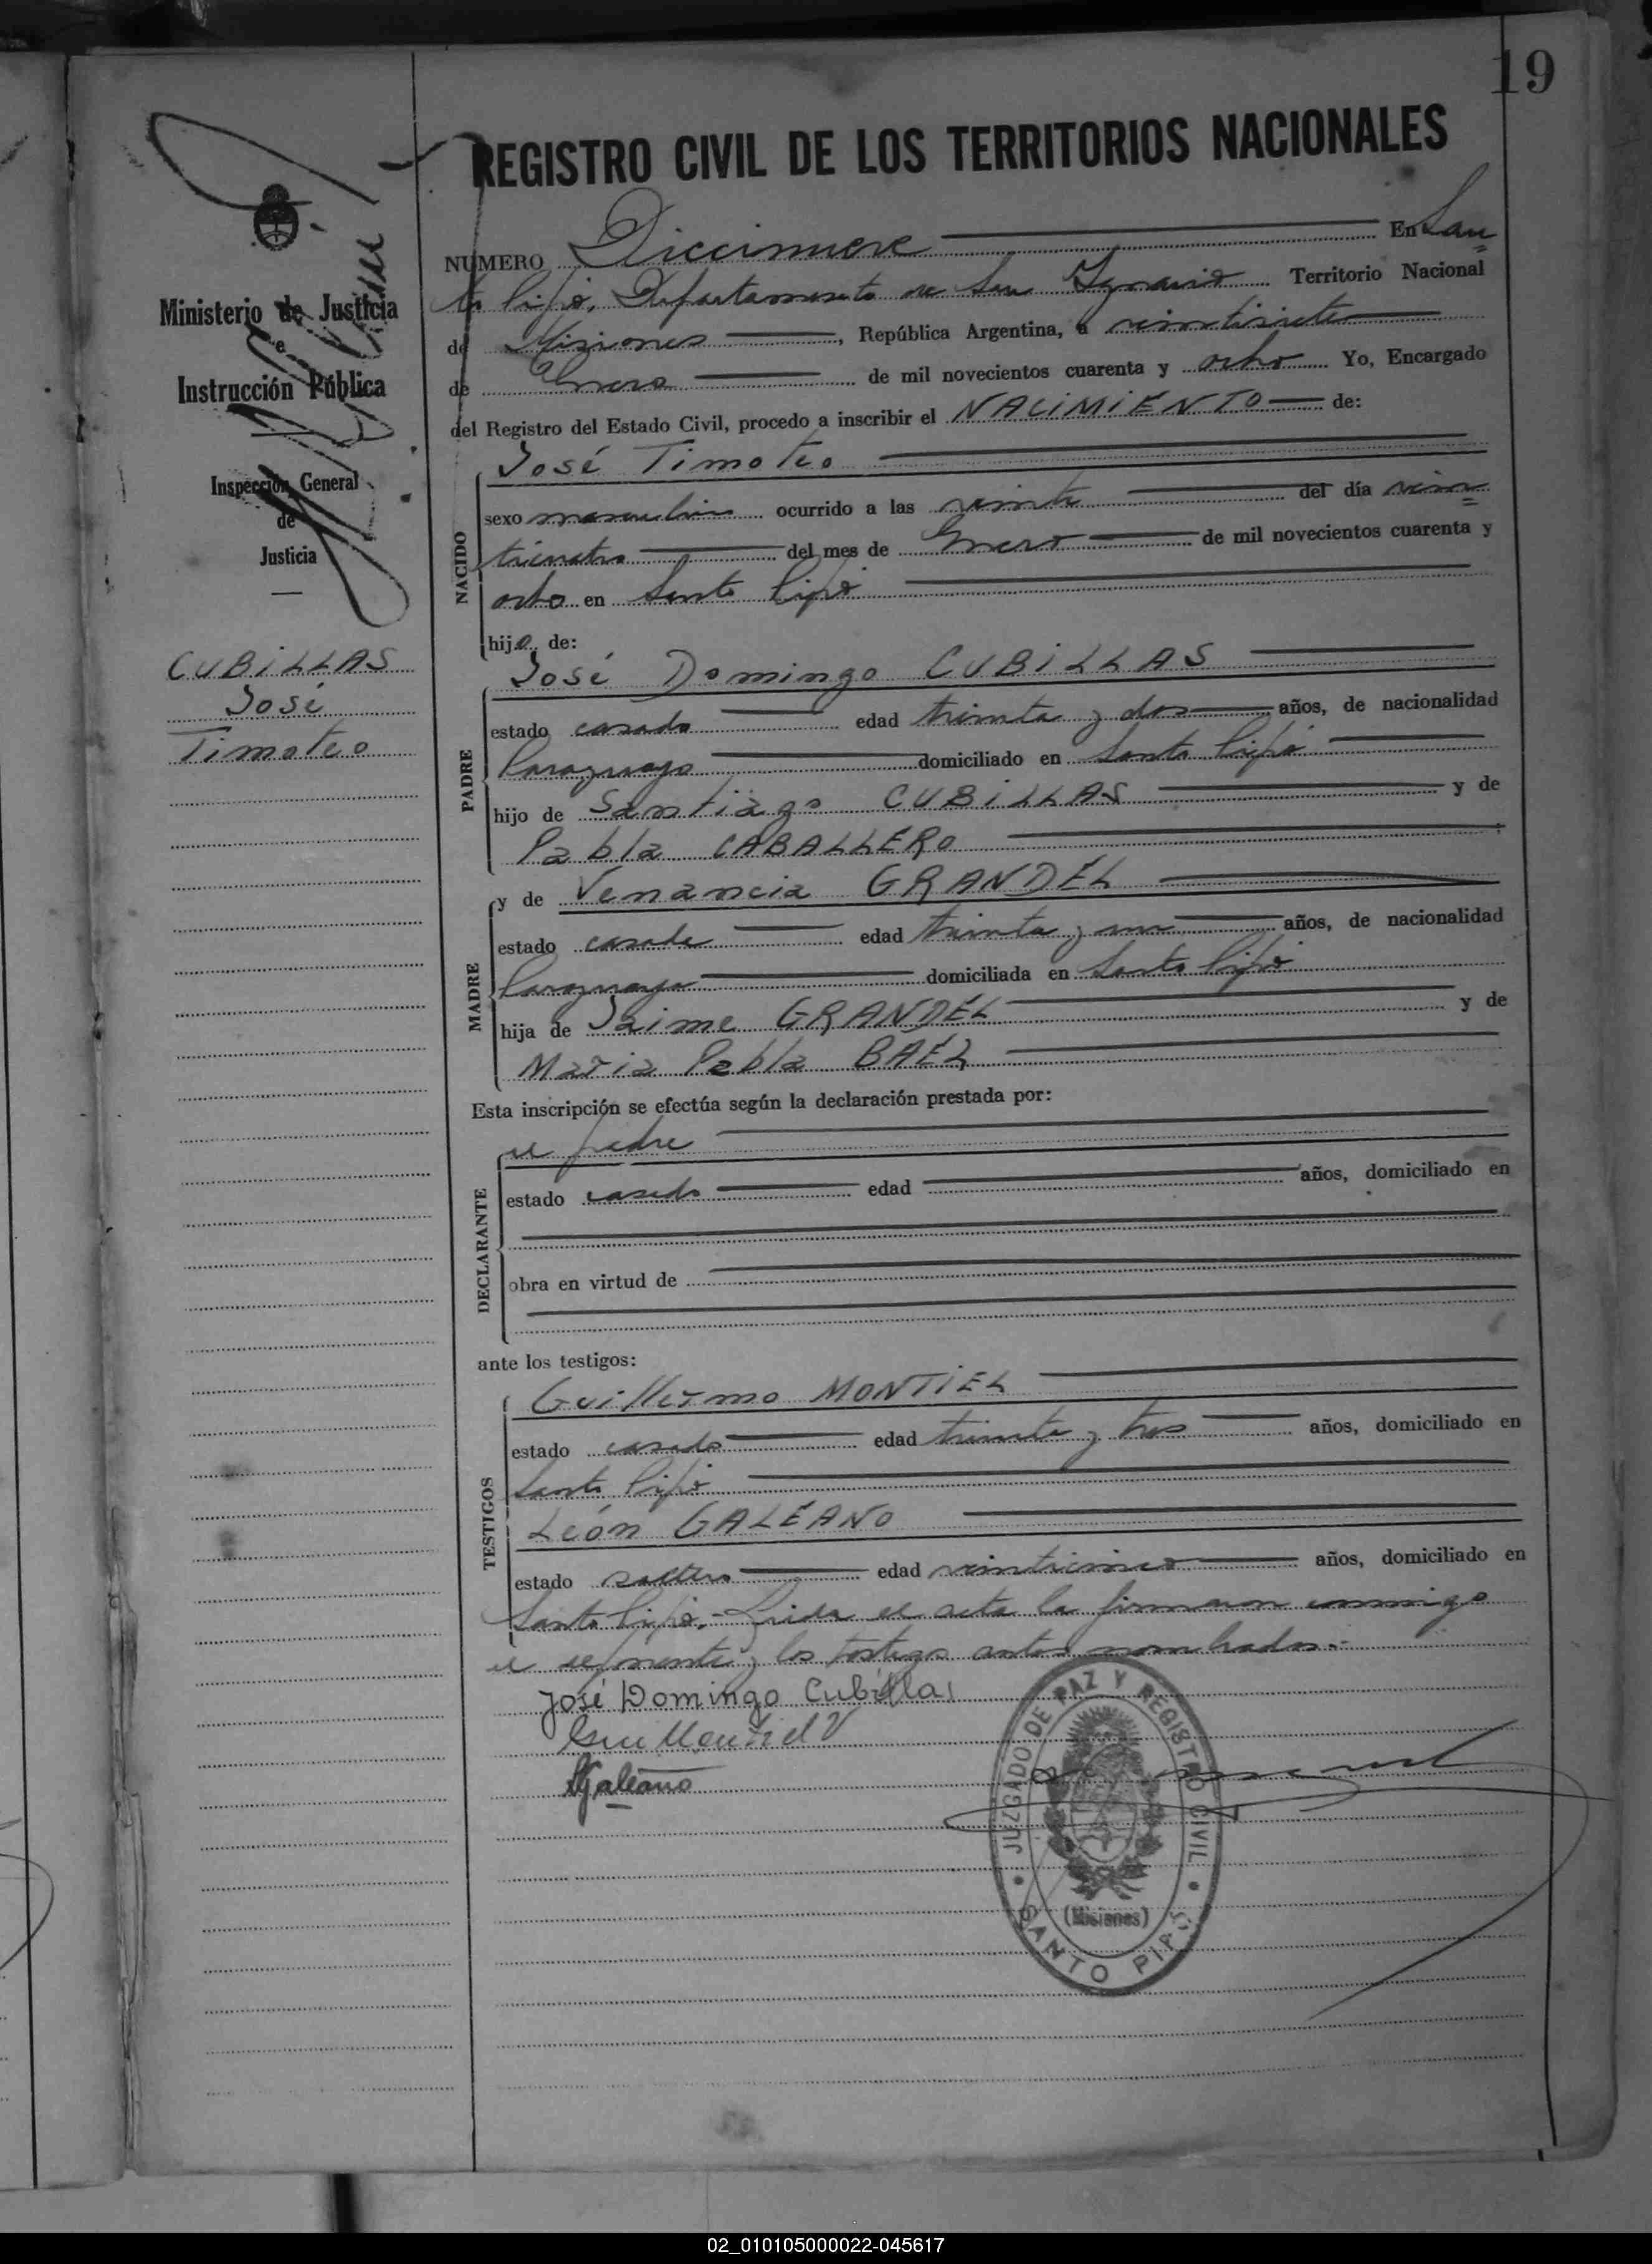 19
REGISTRO CIVIL DE LOS TERRITORIOS NACIONALES
Ministerio de Justicia
e
Instrucción Pública
Inspección General
de
Justicia
CUBILLAS
José
Timoteo
NUMERO Diecinueve En San=
to Pipó, Departamento de San Ignacio Territorio Nacional
de Misiones, República Argentina, a veintisiete
de Enero de mil novecientos cuarenta y ocho Yo, Encargado
del Registro del Estado Civil, procedo a inscribir el NACIMIENTO de:
NACIDO
José Timoteo
sexo masculino ocurrido a las veinte del día vein=
ticuatro del mes de Enero de mil novecientos cuarenta y
ocho en Santo Pipó
hijo de:
PADRE
José Domingo CUBILLAS
estado casado edad treinta y dos años, de nacionalidad
Paraguayo domiciliado en Santo Pipó
hijo de Santiago CUBILLAS y de
Pabla CABALLERO
MADRE
y de Venancia GRANDEL
estado casada edad treinta y un años, de nacionalidad
Paraguaya domiciliada en Santo Pipó
hija de Jaime GRANDEL y de
Maria Pabla BAEZ
Esta inscripción se efectúa según la declaración prestada por:
DECLARANTE
el padre
estado casado edad años, domiciliado en
obra en virtud de
ante los testigos:
TESTIGOS
Guillermo MONTIEL
estado casado edad treinta y tres años, domiciliado en
Santo Pipó
León GALEANO
estado soltero edad veinticinco años, domiciliado en
Santo Pipó.- Leida el acta la firmaron conmigo
el exponente y los testigos antes nombrados.-
José Domingo Cubillas
Gui Montiel V
LGaleano
JUZGADO DE PAZ Y REGISTRO CIVIL
(Misiones)
SANTO PIPÓ
02_010105000022-045617